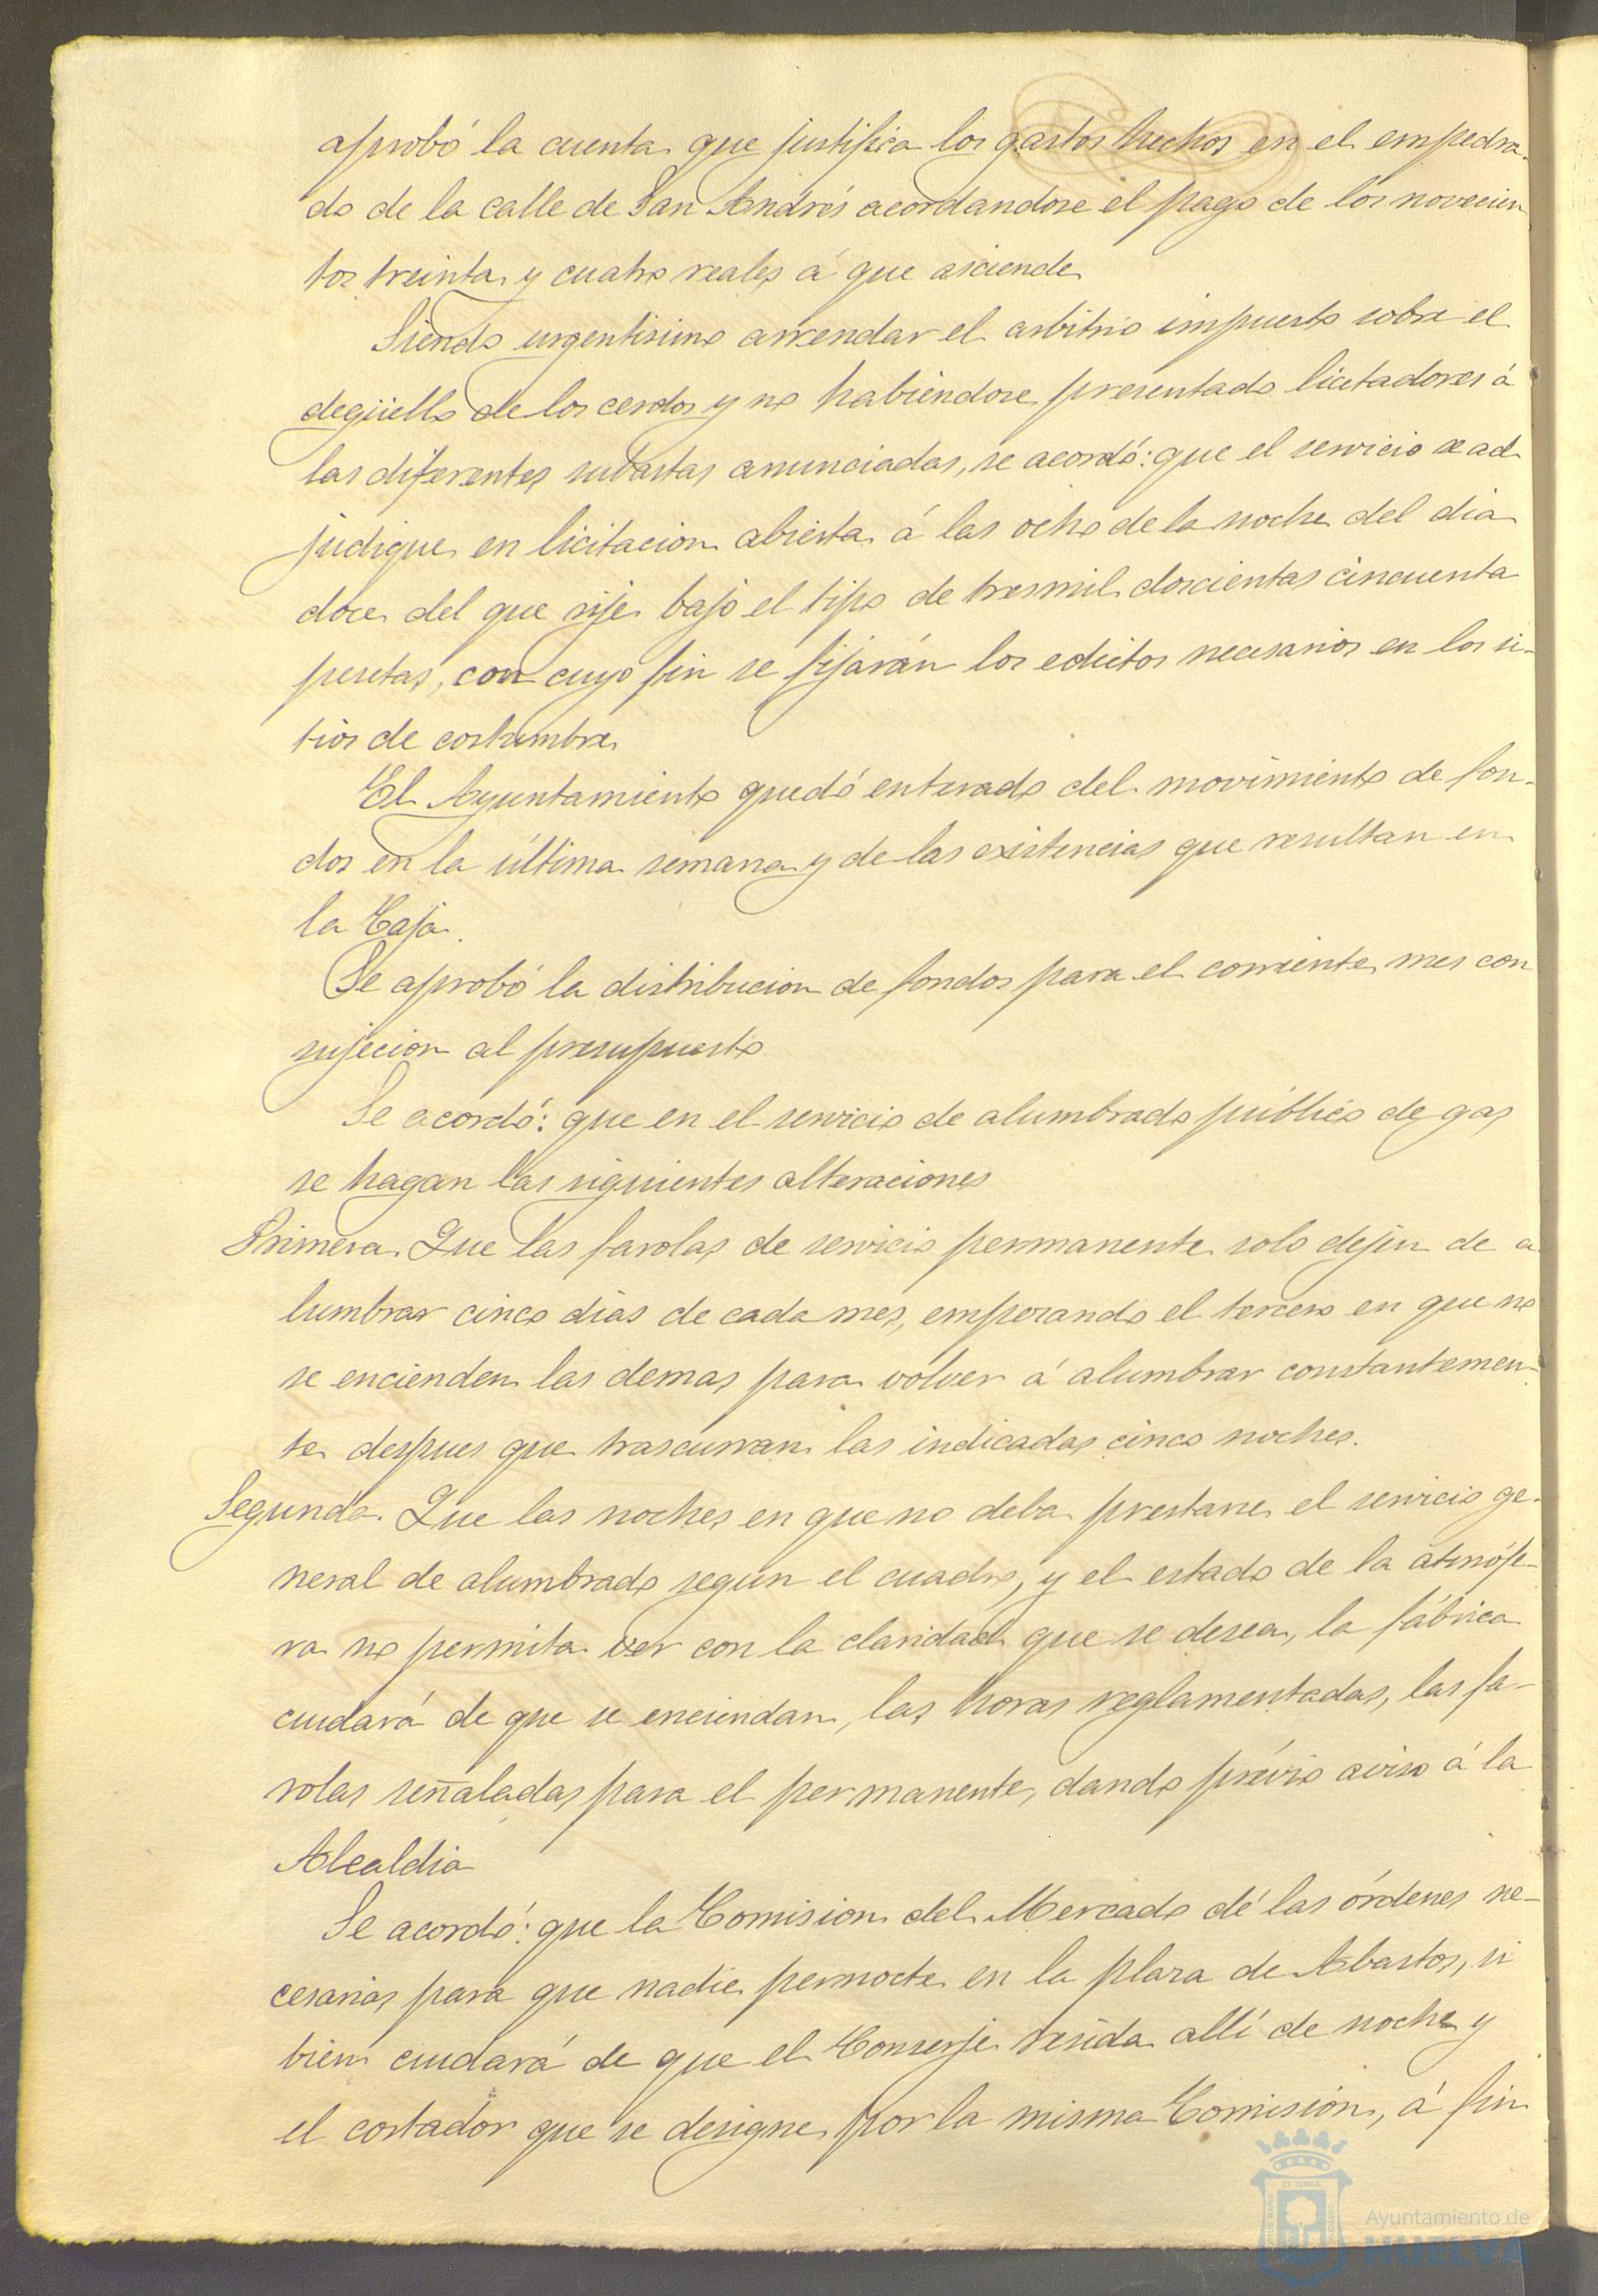 aprobó la cuenta que justifica los gastos hechos en el empedra-
do de la calle de San Andrés acordandose el pago de los novecien
tos treinta y cuatro reales á que asciende
Siendo urgentisimo arrendar el arbitrio impuesto sobre el
degüello de los cerdos y no habiéndose presentado licitadores á
las diferentes subastas anunciadas, se acordó: que el servicio se ad
judique en licitacion abierta á las ocho de la noche del dia
doce del que rije bajo el tipo de tresmil doscientas cincuenta
pesetas, con cuyo fin se fijarán los edictos necesarios en los si-
tios de costumbre
El Ayuntamiento quedó enterado del movimiento de fon-
dos en la última semana y de las existencias que resultan en
la Caja.
Se aprobó la distribucion de fondos para el corriente mes con
sujecion al presupuesto
Se acordó: que en el servicio de alumbrado público de gas
se hagan las siguientes alteraciones
Primera. Que las farolas de servicio permanente solo dejen de a
lumbrar cinco dias de cada mes, empezando el tercero en que no
se encienden las demas para volver á alumbrar constantemen-
te despues que trascurran las indicadas cinco noches.
Segunda. Que las noches en que no deba prestarse el servicio ge-
neral de alumbrado segun el cuadro, y el estado de la atmósfe-
ra no permita ver con la claridad que se desea, la fábrica
cuidará de que se enciendan, las horas reglamentadas, las fa-
rolas señaladas para el permanente, dando prévio aviso á la
Alcaldia
Se acordó: que la Comision del Mercado dé las órdenes ne-
cesarias para que nadie pernocte en la plaza de Abastos, si
bien cuidará de que el Conserje resida allí de noche y
el cortador que se designe por la misma Comisión, á fin
Ayuntamiento de
HUELVA